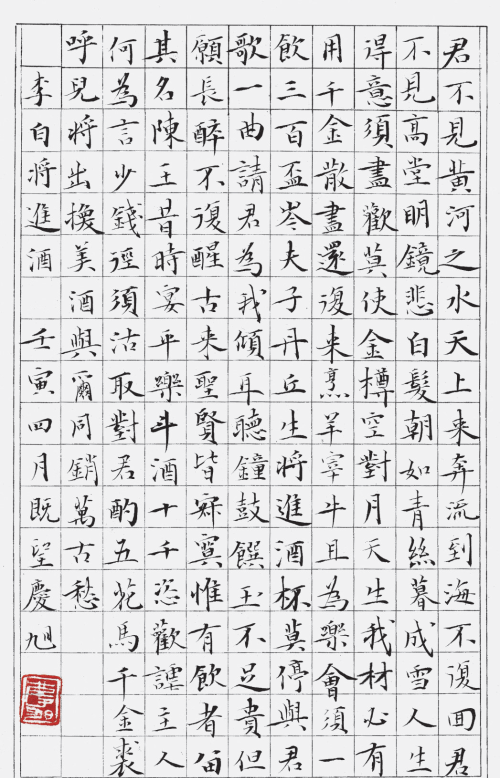 君不見黃河之水天上来奔流到海不復回君
不見高堂明鏡悲白髮朝如青絲暮成雪人生
得意須盡歡莫使金樽空對月天生我材必有
用千金散盡還復来烹羊宰牛且為樂會須一
飲三百盃岑夫子丹丘生將進酒杯莫停與君
歌一曲請君為我傾耳聽鐘鼓饌玉不足貴但
願長醉不復醒古来聖賢皆寂寞惟有飲者留
其名陳王昔時宴平樂斗酒十千恣歡謔主人
何為言少錢徑須沽取對君酌五花馬千金裘
呼兒將出換美酒與爾同銷萬古愁
李白將進酒 壬寅四月既望慶旭